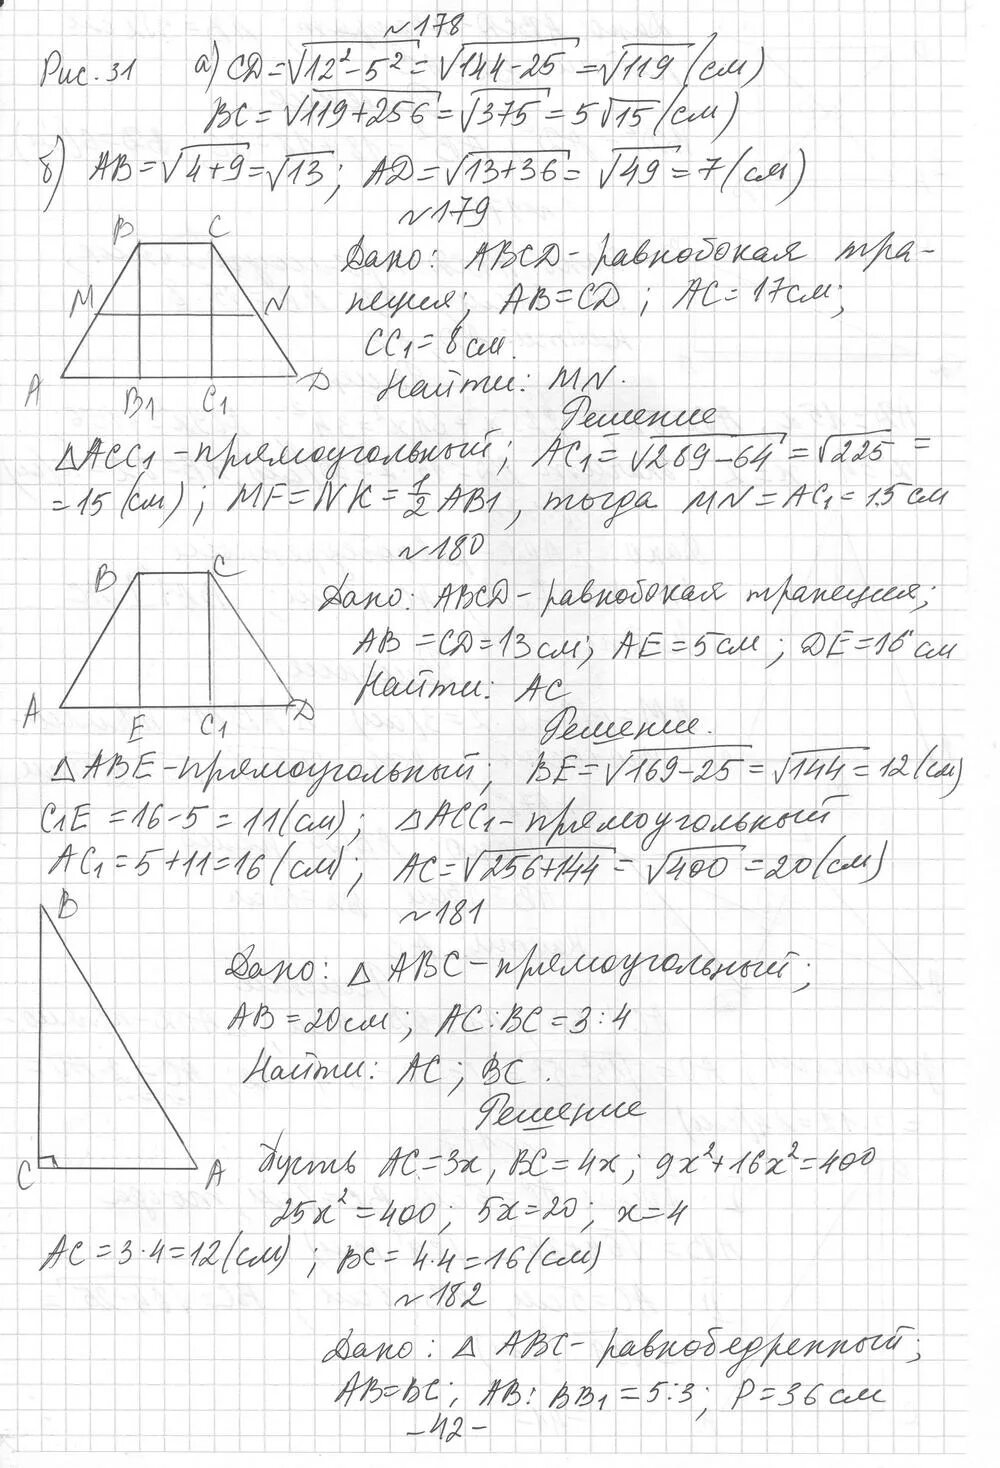 №178
Рис. 31 а) CD=√12²-5²=√144-25=√119 (см)
BC=√119+256=√375=5√15 (см)
б) AB=√4+9=√13; AD=√13+36=√49=7(см)
№179
B C
M N
A B1 C1 D
Дано: ABCD-равнобокая тра-
пеция; AB=CD; AC=17см;
CC1=8см.
Найти: MN.
Решение
△ACC1-прямоугольный; AC1=√289-64=√225=
=15 (см); MF=NK=1/2 AB1, тогда MN=AC1=15см
№180
B C
A E C1 D
Дано: ABCD-равнобокая трапеция;
AB=CD=13см; AE=5см; DE=16см
Найти: AC
Решение.
△ABE-прямоугольный; BE=√169-25=√144=12(см)
C1E=16-5=11(см); △ACC1-прямоугольный
AC1=5+11=16(см); AC=√256+144=√400=20(см)
№181
B
C A
Дано: △ABC-прямоугольный;
AB=20см; AC:BC=3:4
Найти: AC; BC.
Решение
Пусть AC=3x, BC=4x; 9x²+16x²=400
25x²=400; 5x=20; x=4
AC=3·4=12(см); BC=4·4=16(см)
№182
Дано: △ABC-равнобедренный;
AB=BC; AB:BB1=5:3; P=36см
-42-